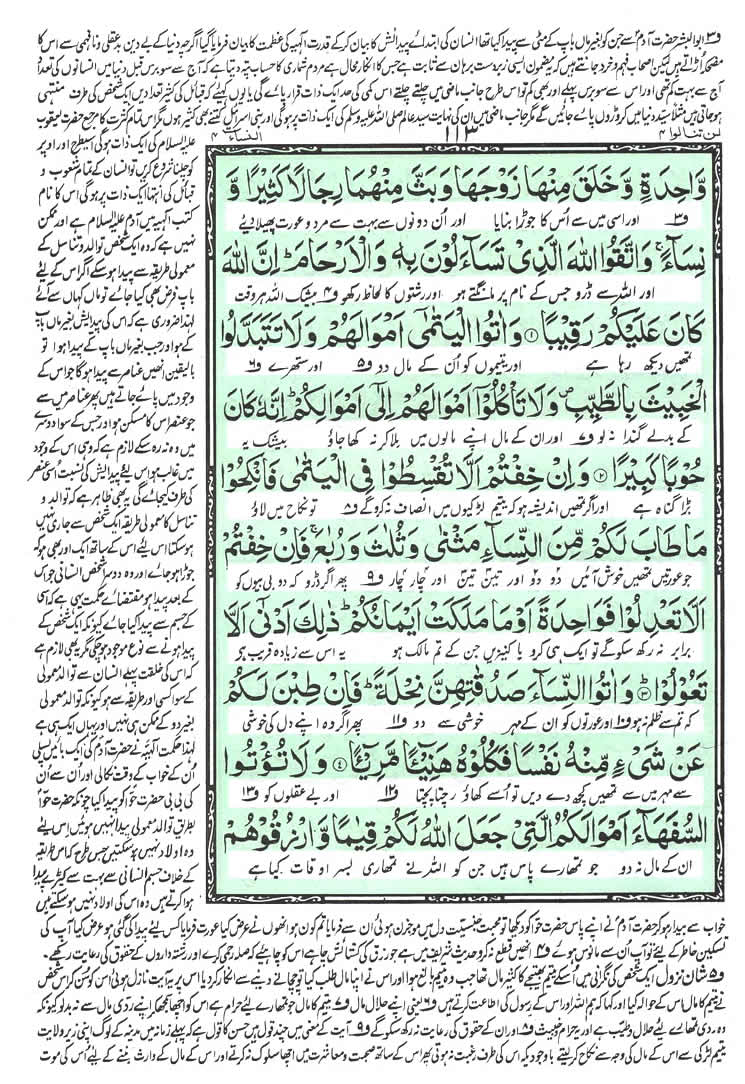 و۳ ابوالبشر حضرت آدم سے جن کو بغیر ماں باپ کے مٹی سے پیدا کیا تھا انسان کی ابتدائے پیدائش کا بیان کرکے قدرت الٰہیہ کی عظمت کا بیان فرمایا گیا اگرچہ دنیا کے بے دین بدعقلی و نافہمی سے اس کا
مضحکہ اڑاتے ہیں لیکن اصحاب فہم و خرد جانتے ہیں کہ یہ مضمون ایسی زبردست برہان سے ثابت ہے جس کا انکار محال ہے مردم شماری کا حساب پتہ دیتا ہے کہ آج سے سو برس قبل دنیا میں انسانوں کی تعداد
آج سے بہت کم تھی اور اس سے سو برس پہلے اور بھی کم تو اس طرح جانب ماضی میں چلتے چلتے اس کمی کی حد ایک ذات قرار پائے گی یا یوں کہئے کہ قبائل کی کثیر تعدادیں ایک شخص کی طرف منتہی
ہوجاتی ہیں مثلاً سید دنیا میں کروڑوں پائے جائیں گے مگر جانب ماضی میں ان کی نہایت سید عالم صلی اللہ علیہ وسلم کی ایک ذات پر ہوگی اور بنی اسرائیل کتنے بھی کثیر ہوں مگر اس تمام کثرت کا مرجع حضرت یعقوب
لن تنالوا ۴
۱۱۳
النساء ۴
وَّاحِدَةٍ وَّخَلَقَ مِنْهَا زَوْجَهَا وَبَثَّ مِنْهُمَا رِجَالًا كَثِيْرًا وَّ
و۳ اور اسی میں سے اُس کا جوڑا بنایا اور ان دونوں سے بہت سے مرد و عورت پھیلا دیئے
نِسَآءً ۚ وَاتَّقُوا اللّٰهَ الَّذِیْ تَسَآءَلُوْنَ بِهٖ وَالْاَرْحَامَ ؕ اِنَّ اللّٰهَ
اور اللہ سے ڈرو جس کے نام پر مانگتے ہو اور رشتوں کا لحاظ رکھو و۴ بیشک اللہ ہر وقت
كَانَ عَلَيْكُمْ رَقِيْبًا ۝۱ وَاٰتُوا الْيَتٰمٰۤى اَمْوَالَهُمْ وَلَا تَتَبَدَّلُوا
تمہیں دیکھ رہا ہے اور یتیموں کو اُن کے مال دو و۵ اور ستھرے و۶
الْخَبِيْثَ بِالطَّيِّبِ ۪ وَلَا تَاْكُلُوْۤا اَمْوَالَهُمْ اِلٰۤى اَمْوَالِكُمْ ؕ اِنَّهٗ كَانَ
کے بدلے گندا نہ لو و۷ اور ان کے مال اپنے مالوں میں ملا کر نہ کھا جاؤ بیشک یہ
حُوْبًا كَبِيْرًا ۝۲ وَاِنْ خِفْتُمْ اَلَّا تُقْسِطُوْا فِی الْيَتٰمٰى فَانْكِحُوْا
بڑا گناہ ہے اور اگر تمہیں اندیشہ ہو کہ یتیم لڑکیوں میں انصاف نہ کرو گے و۸ تو نکاح میں لاؤ
مَا طَابَ لَكُمْ مِّنَ النِّسَآءِ مَثْنٰى وَثُلٰثَ وَرُبٰعَ ۚ فَاِنْ خِفْتُمْ
جو عورتیں تمہیں خوش آئیں دو دو اور تین تین اور چار چار و۹ پھر اگر ڈرو کہ دو بی بیوں کو
اَلَّا تَعْدِلُوْا فَوَاحِدَةً اَوْ مَا مَلَكَتْ اَيْمَانُكُمْ ؕ ذٰلِكَ اَدْنٰۤى اَلَّا
برابر نہ رکھ سکو گے تو ایک ہی کرو یا کنیزیں جن کے تم مالک ہو یہ اس سے زیادہ قریب ہے
تَعُوْلُوْا ۝۳ وَاٰتُوا النِّسَآءَ صَدُقٰتِهِنَّ نِحْلَةً ؕ فَاِنْ طِبْنَ لَكُمْ
کہ تم سے ظلم نہ ہو و۱۰ اور عورتوں کو ان کے مہر خوشی سے دو و۱۱ پھر اگر وہ اپنے دل کی خوشی
عَنْ شَیْءٍ مِّنْهُ نَفْسًا فَكُلُوْهُ هَنِیْٓـًٔا مَّرِیْٓـًٔا ۝۴ وَلَا تُؤْتُوا
سے مہر میں سے تمہیں کچھ دے دیں تو اُسے کھاؤ رچتا پچتا و۱۲ اور بے عقلوں کو و۱۳
السُّفَهَآءَ اَمْوَالَكُمُ الَّتِیْ جَعَلَ اللّٰهُ لَكُمْ قِيٰمًا وَّارْزُقُوْهُمْ
ان کے مال نہ دو جو تمہارے پاس ہیں جن کو اللہ نے تمہاری بسر اوقات کیا ہے
علیہ السلام کی ایک ذات ہوگی اسی طرح اور اوپر
کو چلنا شروع کریں تو انسان کے تمام شعوب و
قبائل کی انتہا ایک ذات پر ہوگی اس کا نام
کتب الٰہیہ میں آدم علیہ السلام ہے اور ممکن
نہیں ہے کہ وہ ایک شخص توالد و تناسل کے
معمولی طریقہ سے پیدا ہوسکے اگر اس کے لئے
باپ فرض بھی کیا جائے تو ماں کہاں سے آئے
لہٰذا ضروری ہے کہ اس کی پیدائش بغیر ماں باپ
کے ہو اور جب بغیر ماں باپ کے پیدا ہوا تو
بالیقین انہیں عناصر سے پیدا ہوگا جو اس کے
وجود میں پائے جاتے ہیں پھر عناصر میں سے
جو عنصر اس کا مسکن ہو اور جس کے سوا دوسرے
میں وہ نہ رہ سکے لازم ہے کہ وہی اس کے وجود
میں غالب ہو اس لئے پیدائش کی نسبت اسی عنصر
کی طرف کی جائے گی یہ بھی ظاہر ہے کہ توالد و
تناسل کا معمولی طریقہ ایک شخص سے جاری نہیں
ہوسکتا اس لئے اس کے ساتھ ایک اور بھی ہو کہ
جوڑا ہوجائے اور وہ دوسرا شخص انسانی جو اس
کے بعد پیدا ہو مقتضائے حکمت یہی ہے کہ اسی
کے جسم سے پیدا کیا جائے کیونکہ ایک شخص کے
پیدا ہونے سے نوع موجود ہوچکی مگر یہ بھی لازم ہے
کہ اس کی خلقت پہلے انسان سے توالد معمولی
کے سوا کسی اور طریقہ سے ہو کیونکہ توالد معمولی
بغیر دو کے ممکن ہی نہیں اور یہاں ایک ہی ہے
لہٰذا حکمت الٰہیہ نے حضرت آدم کی ایک بائیں پسلی
اُن کے خواب کے وقت نکالی اور اُن سے اُن
کی بی بی حضرت حوّا کو پیدا کیا چونکہ حضرت حوّا
بطریق توالد معمولی پیدا نہیں ہوئیں اس لئے
وہ اولاد نہیں ہوسکتیں جس طرح کہ اس طریقہ
کے خلاف جسم انسانی سے بہت سے کیڑے پیدا
ہوا کرتے ہیں وہ اس کی اولاد نہیں ہوسکتے ہیں
خواب سے بیدار ہوکر حضرت آدم نے اپنے پاس حضرت حوّا کو دیکھا تو محبت جنسیت دل میں موجزن ہوئی اُن سے فرمایا تم کون ہو انھوں نے عرض کیا عورت فرمایا کس لئے پیدا کی گئی ہو عرض کیا آپ کی
تسکین خاطر کے لئے تو آپ اُن سے مانوس ہوئے و۴ انھیں قطع نہ کرو حدیث شریف میں ہے جو رزق کی کشائش چاہے اس کو چاہئے کہ صلہ رحمی کرے اور رشتہ داروں کے حقوق کی رعایت رکھے۔
و۵ شان نزول ایک شخص کی نگرانی میں اُس کے یتیم بھتیجے کا کثیر مال تھا جب وہ یتیم بالغ ہوا اور اس نے اپنا مال طلب کیا تو چچا نے دینے سے انکار کردیا اس پر یہ آیت نازل ہوئی اس کو سن کر اس شخص
نے یتیم کا مال اس کے حوالہ کیا اور کہا کہ ہم اللہ اور اس کے رسول کی اطاعت کرتے ہیں و۶ یعنی اپنے حلال مال و۷ یتیم کا مال جو تمہارے لئے حرام ہے اس کو اچھا سمجھ کر اپنے ردّی مال سے نہ بدلو کیونکہ
وہ ردّی تمہارے لئے حلال و طیّب ہے اور یہ حرام و خبیث و۸ اور ان کے حقوق کی رعایت نہ رکھ سکو گے و۹ آیت کے معنی میں چند قول ہیں حسن کا قول ہے کہ پہلے زمانہ میں مدینہ کے لوگ اپنی زیر ولایت
یتیم لڑکی سے اس کے مال کی وجہ سے نکاح کرلیتے باوجودیکہ اس کی طرف رغبت نہ ہوتی پھر اس کے ساتھ صحبت و معاشرت میں اچھا سلوک نہ کرتے اور اس کے مال کے وارث بننے کے لئے اُس کی موت